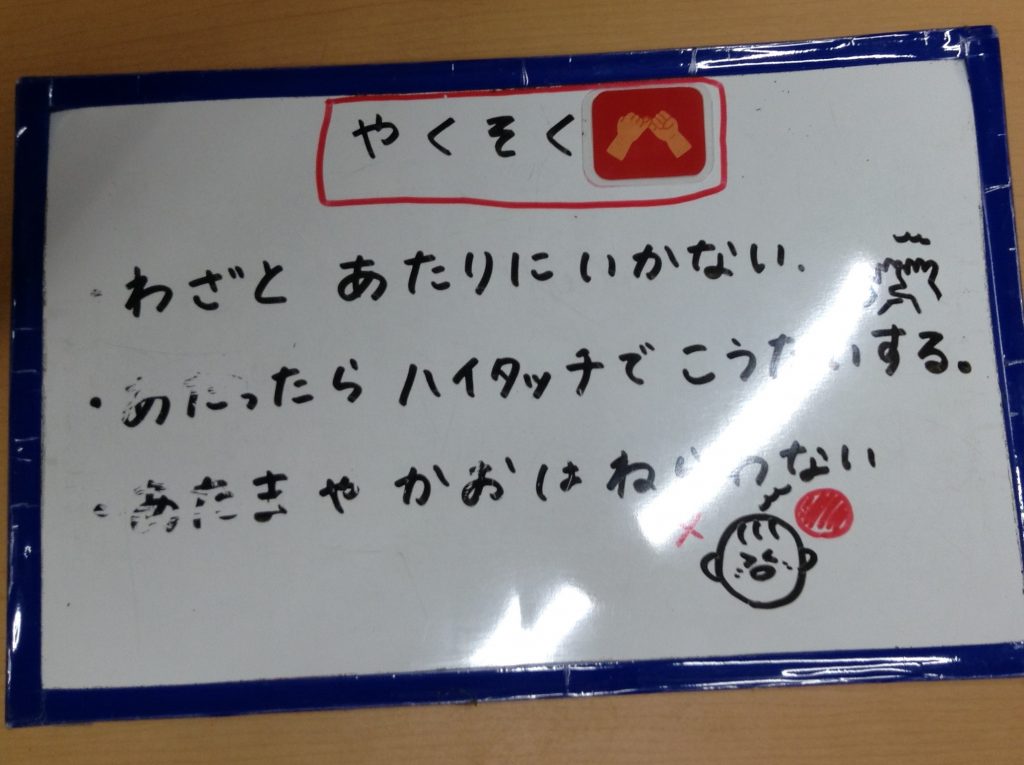 やくそく
・わざと あたりにいかない.
・あたったら ハイタッチで こうたいする。
・あたまや かおは ねらわない